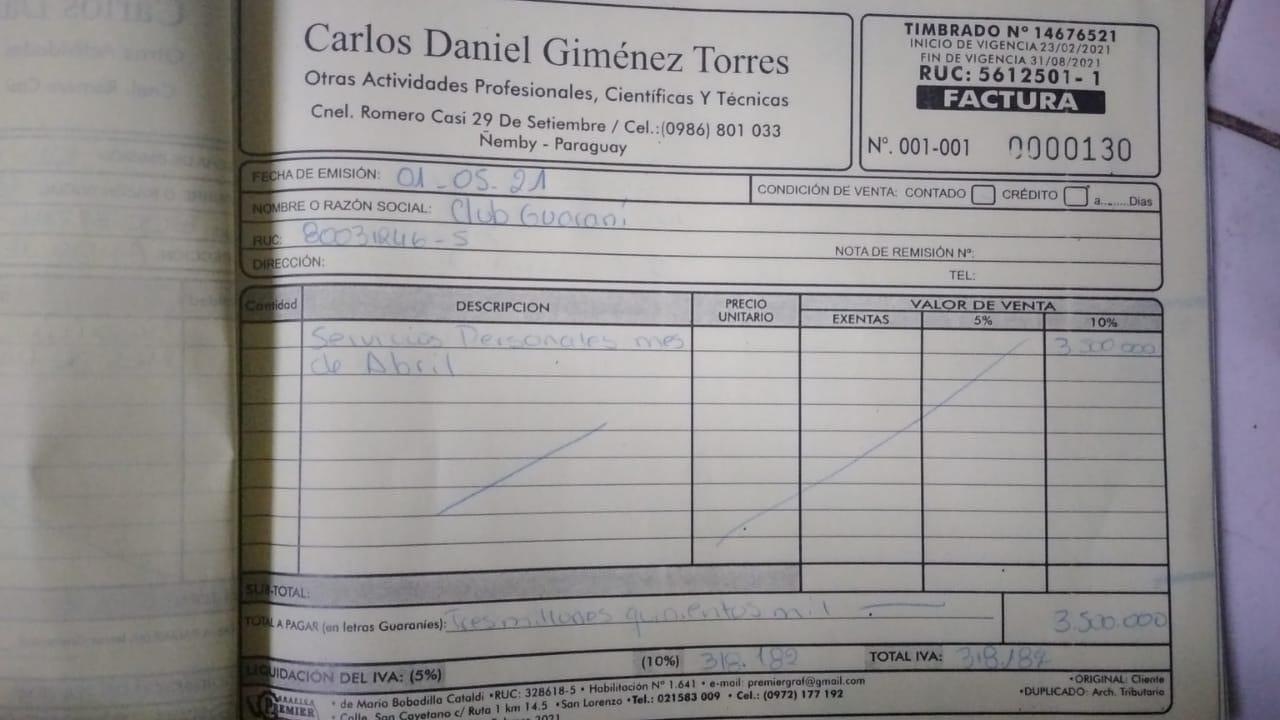 Carlos Daniel Giménez Torres
Otras Actividades Profesionales, Científicas Y Técnicas
Cnel. Romero Casi 29 De Setiembre / Cel.:(0986) 801 033
Ñemby - Paraguay
TIMBRADO Nº 14676521
INICIO DE VIGENCIA 23/02/2021
FIN DE VIGENCIA 31/08/2021
RUC: 5612501- 1
FACTURA
Nº. 001-001 0000130
FECHA DE EMISIÓN: 01-05-21
CONDICIÓN DE VENTA: CONTADO CRÉDITO a.......Dias
NOMBRE O RAZÓN SOCIAL: Club Guaraní
RUC: 80031246-5
NOTA DE REMISIÓN Nº:
DIRECCIÓN: TEL:
Cantidad DESCRIPCION PRECIO UNITARIO VALOR DE VENTA
EXENTAS 5% 10%
Servicios Personales mes 3.500.000
de Abril
SUB-TOTAL:
TOTAL A PAGAR (en letras Guaraníes): Tres millones quinientos mil 3.500.000
LIQUIDACIÓN DEL IVA: (5%) (10%) 318.182 TOTAL IVA: 318.182
PREMIER
de Mario Bobadilla Cataldi •RUC: 328618-5 • Habilitación Nº 1.641 • e-mail: premiergraf@gmail.com
• Calle. San Cayetano c/ Ruta 1 km 14.5 •San Lorenzo •Tel.: 021583 009 • Cel.: (0972) 177 192
•ORIGINAL: Cliente
•DUPLICADO: Arch. Tributario